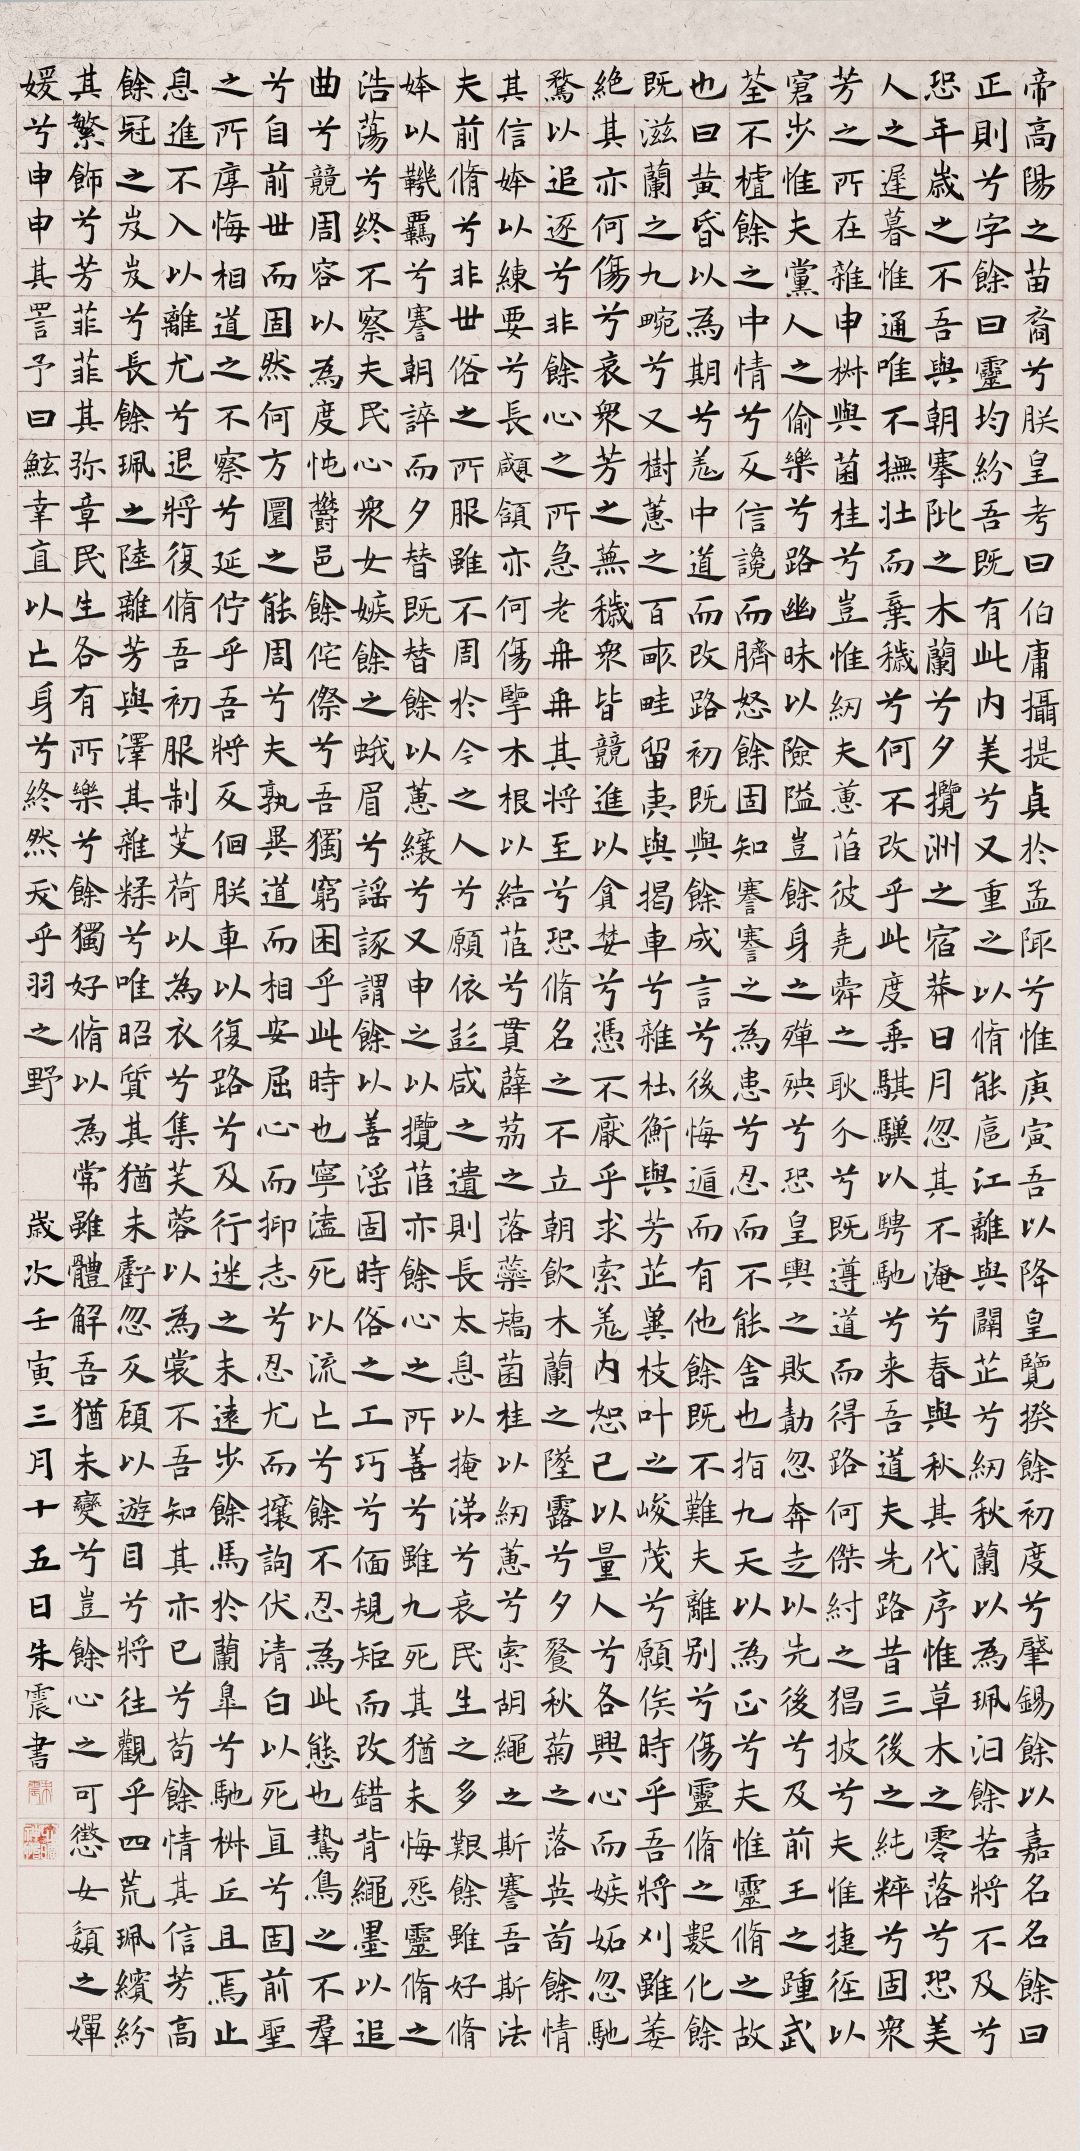 帝高陽之苗裔兮朕皇考曰伯庸攝提貞於孟陬兮惟庚寅吾以降皇覽揆餘初度兮肇錫餘以嘉名名餘曰
正則兮字餘曰靈均紛吾既有此内美兮又重之以脩能扈江離與闢芷兮紉秋蘭以為珮汩餘若將不及兮
恐年歲之不吾與朝搴阰之木蘭兮夕攬洲之宿莽日月忽其不淹兮春與秋其代序惟草木之零落兮恐美
人之遲暮惟通唯不撫壯而棄穢兮何不改乎此度乘騏驥以騁馳兮来吾道夫先路昔三後之純粹兮固衆
芳之所在雜申椒與菌桂兮豈惟紉夫蕙茝彼堯舜之耿介兮既遵道而得路何傑紂之猖披兮夫惟捷徑以
窘步惟夫黨人之偷樂兮路幽昧以險隘豈餘身之殫殃兮恐皇輿之敗勣忽奔走以先後兮及前王之踵武
荃不樝餘之中情兮反信讒而臍怒餘固知謇謇之為患兮忍而不能舍也指九天以為正兮夫惟靈脩之故
也曰黄昏以為期兮羌中道而改路初既與餘成言兮後悔遁而有他餘既不難夫離別兮傷靈脩之數化餘
既滋蘭之九畹兮又樹蕙之百畝畦留夷與揭車兮雜杜衡與芳芷冀枝叶之峻茂兮願俟時乎吾將刈雖萎
絶其亦何傷兮哀衆芳之蕪穢衆皆競進以貪婪兮憑不厭乎求索羌内恕己以量人兮各興心而嫉妬忽馳
騖以追逐兮非餘心之所急老冉冉其將至兮恐脩名之不立朝飲木蘭之墜露兮夕餐秋菊之落英苟餘情
其信姱以練要兮長顑頷亦何傷擥木根以結茝兮貫薜荔之落蘂矯菌桂以紉蕙兮索胡繩之斯謇吾斯法
夫前脩兮非世俗之所服雖不周於今之人兮願依彭咸之遺則長太息以掩涕兮哀民生之多艱餘雖好脩
姱以鞿羈兮謇朝誶而夕替既替餘以蕙纕兮又申之以攬茝亦餘心之所善兮雖九死其猶未悔怨靈脩之
浩蕩兮終不察夫民心衆女嫉餘之蛾眉兮謡諑謂餘以善淫固時俗之工巧兮偭規矩而改錯背繩墨以追
曲兮競周容以為度忳鬱邑餘侘傺兮吾獨窮困乎此時也寧溘死以流亡兮餘不忍為此態也鷙鳥之不羣
兮自前世而固然何方圜之能周兮夫孰異道而相安屈心而抑志兮忍尤而攘詢伏清白以死直兮固前聖
之所厚悔相道之不察兮延佇乎吾將反佪朕車以復路兮及行迷之未遠步餘馬於蘭臯兮馳椒丘且焉止
息進不入以離尤兮退將復脩吾初服制芰荷以為衣兮集芙蓉以為裳不吾知其亦已兮苟餘情其信芳高
餘冠之岌岌兮長餘珮之陸離芳與澤其雜糅兮唯昭質其猶未虧忽反顧以遊目兮將往觀乎四荒珮繽紛
其繁飾兮芳菲菲其弥章民生各有所樂兮餘獨好脩以為常雖體解吾猶未變兮豈餘心之可懲女嬃之嬋
媛兮申申其詈予曰鮌幸直以亡身兮終然夭乎羽之野 歲次壬寅三月十五日朱震書